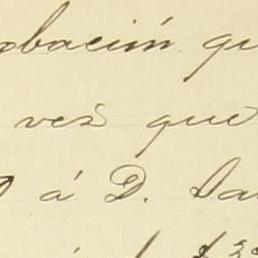 obación qu
vez que
á D. Sa